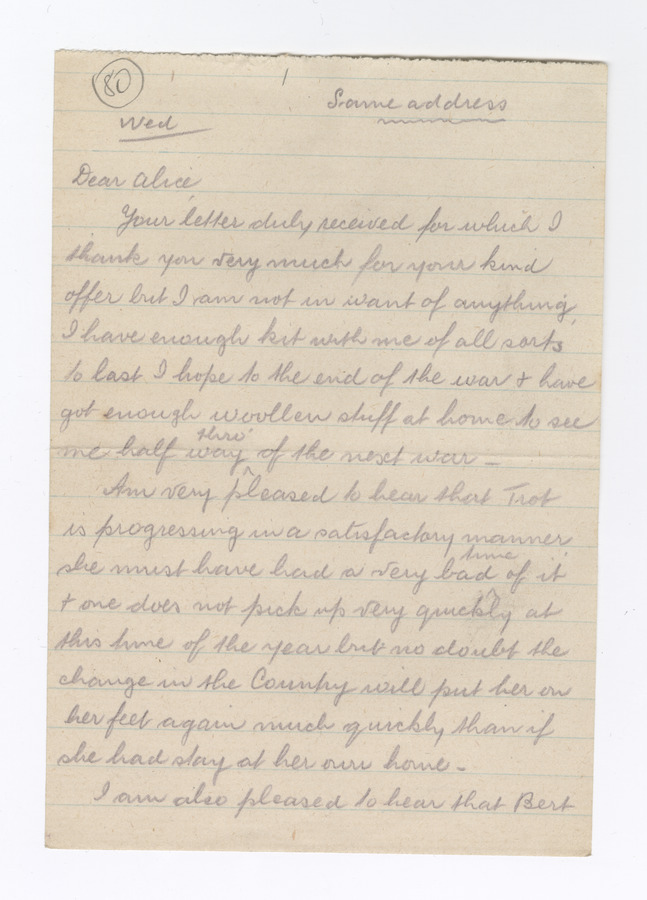 80
Same address
Wed
Dear Alice
Your letter duly received for which I
thank you very much for your kind
offer but I am not in want of anything,
I have enough kit with me of all sorts
to last I hope to the end of the war + have
got enough woollen stuff at home to see
thro'
me half way of the next war -
Am very pleased to hear that Trot
is progressing in a satisfactory manner
time
she must have had a very bad of it
+ one does not pick up very quickly at
this time of the year but no doubt the
change in the Country will put her on
her feet again much quickly than if
she had stay at her own home -
I am also pleased to hear that Bert